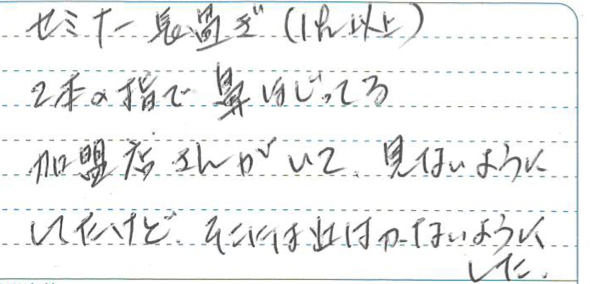 セミナー長過ぎ(1h以上)
2本の指で鼻ほじってる
加盟店さんがいて、見ないように
してたけど、そこには近付かないように
した.